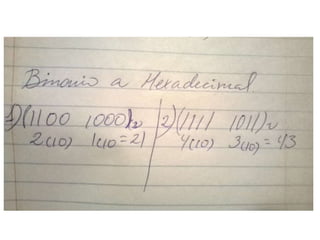 Binario a Hexadecimal.
1) (1100 1000)₂ 2) (1111 1011)₂
2(10) 1(10) = 21 4(10) 3(10) = 43